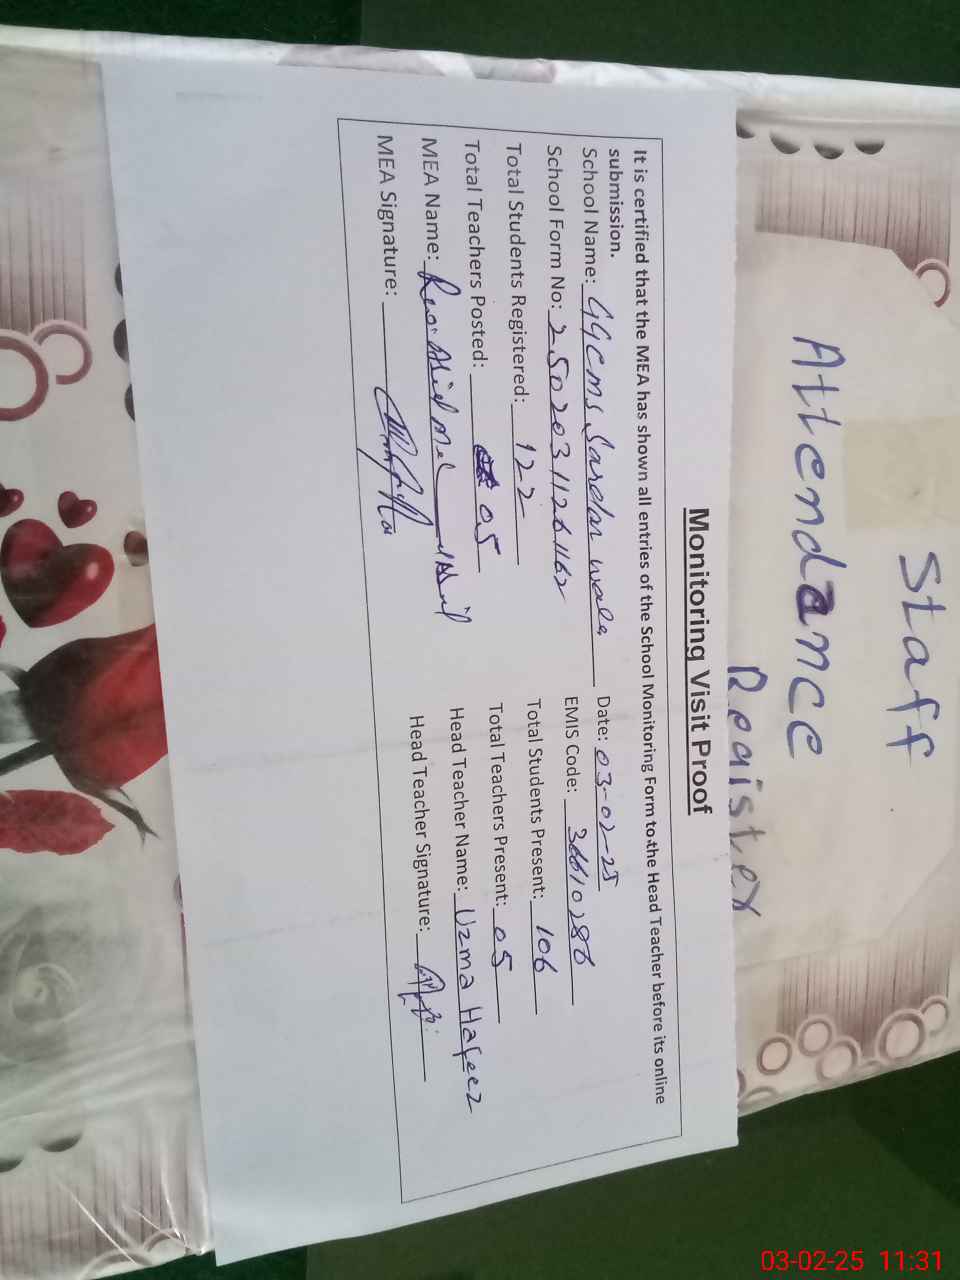 Staff
Attendance
Register
Monitoring Visit Proof
It is certified that the MEA has shown all entries of the School Monitoring Form to the Head Teacher before its online
submission.
School Name: GGCMS Sardar wala Date: 03-02-25
School Form No: 25020311261162 EMIS Code: 36610286
Total Students Registered: 122 Total Students Present: 106
Total Teachers Posted: 05 Total Teachers Present: 05
MEA Name: Head Teacher Name: Uzma Hafeez
MEA Signature: Head Teacher Signature:
03-02-25 11:31